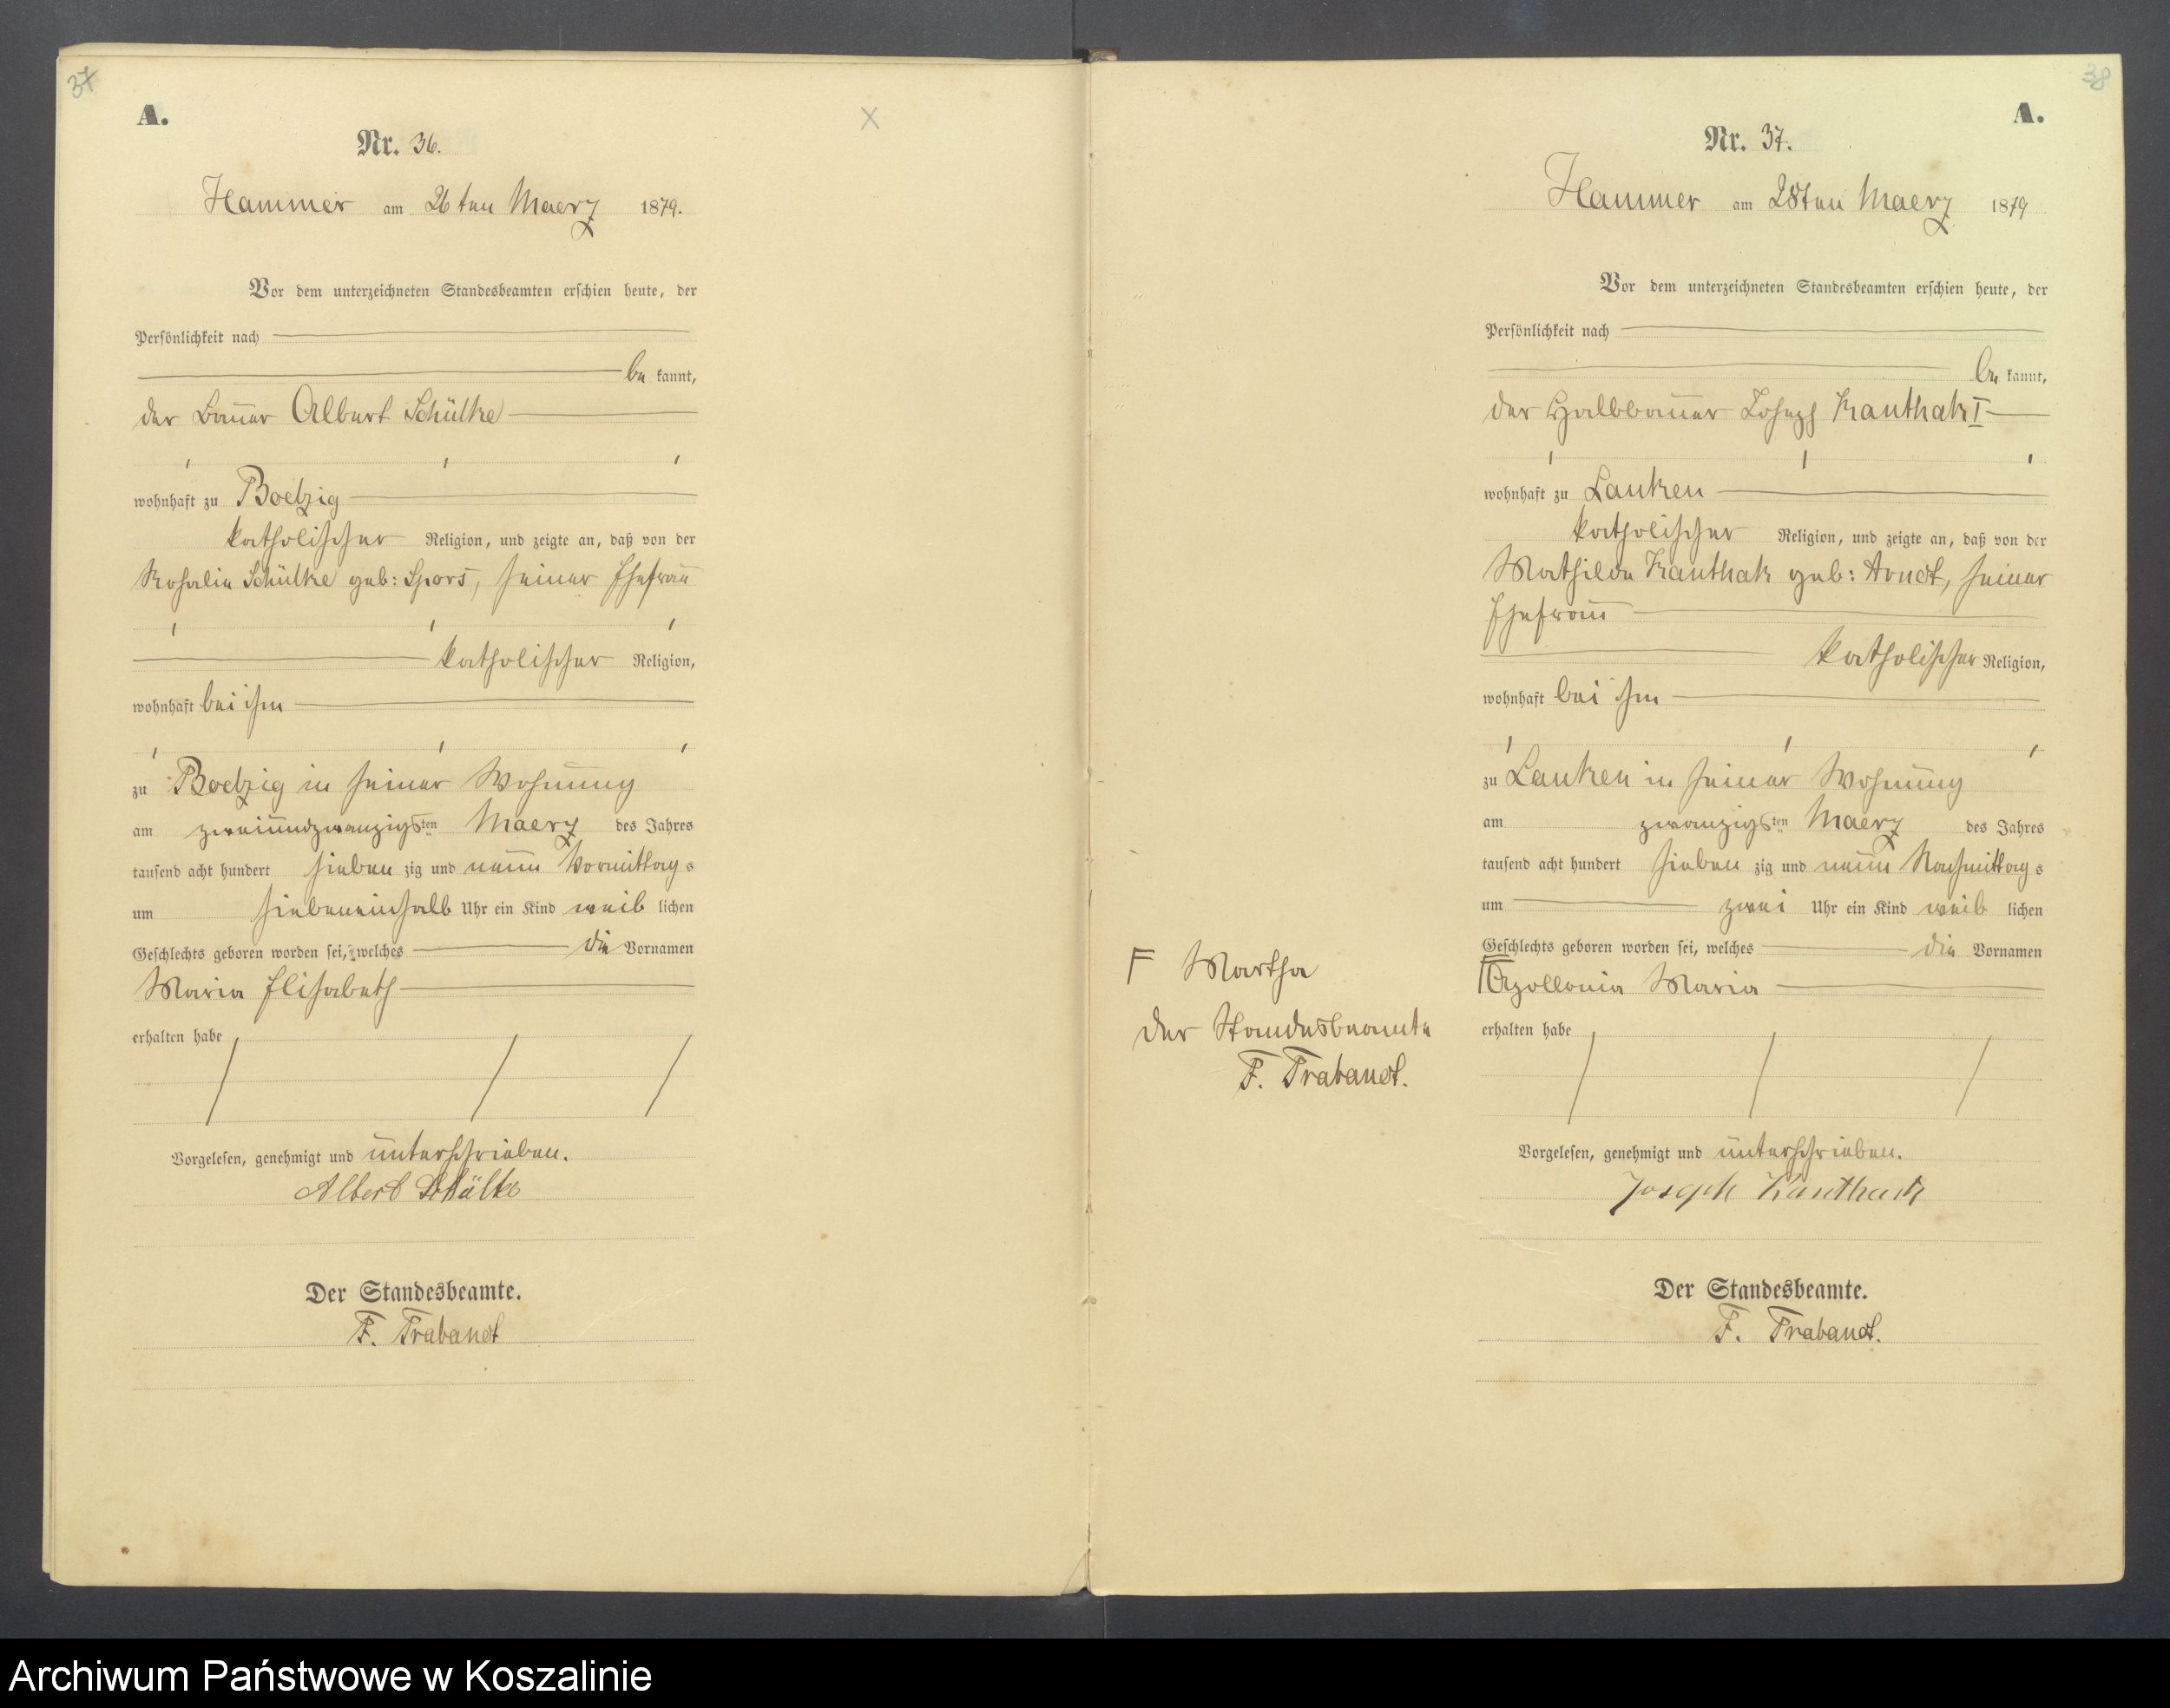 37
A.
X
Nr. 36.
Hammer am 26ten Maerz 1879.
Vor dem unterzeichneten Standesbeamten erschien heute, der
Persönlichkeit nach
be kannt,
der Bauer Albert Schülke
wohnhaft zu Boelzig
katholischer Religion, und zeigte an, daß von der
Rosalie Schülke geb: Spors, seiner Ehefrau
katholischer Religion,
wohnhaft bei ihm
zu Boelzig in seiner Wohnung
am zweiundzwanzigsten Maerz des Jahres
tausend acht hundert sieben zig und neun Vormittags
um siebeneinhalb Uhr ein Kind weib lichen
Geschlechts geboren worden sei, welches die Vornamen
Maria Elisabeth
erhalten habe
Vorgelesen, genehmigt und unterschrieben.
Albert Schülke
Der Standesbeamte.
F. Trabandt
38
A.
Nr. 37.
Hammer am 28ten Maerz 1879
Vor dem unterzeichneten Standesbeamten erschien heute, der
Persönlichkeit nach
be kannt,
der Halbbauer Joseph Kanthak I
wohnhaft zu Lanken
katholischer Religion, und zeigte an, daß von der
Mathilde Kanthak geb: Arndt, seiner
Ehefrau
katholischer Religion,
wohnhaft bei ihm
zu Lanken in seiner Wohnung
am zwanzigsten Maerz des Jahres
tausend acht hundert sieben zig und neun Nachmittags
um zwei Uhr ein Kind weib lichen
Geschlechts geboren worden sei, welches die Vornamen
Γ Apollonia Maria
erhalten habe
Γ Martha
der Standesbeamte
F. Trabandt.
Vorgelesen, genehmigt und unterschrieben.
Joseph Kanthack
Der Standesbeamte.
F. Trabandt.
Archiwum Państwowe w Koszalinie